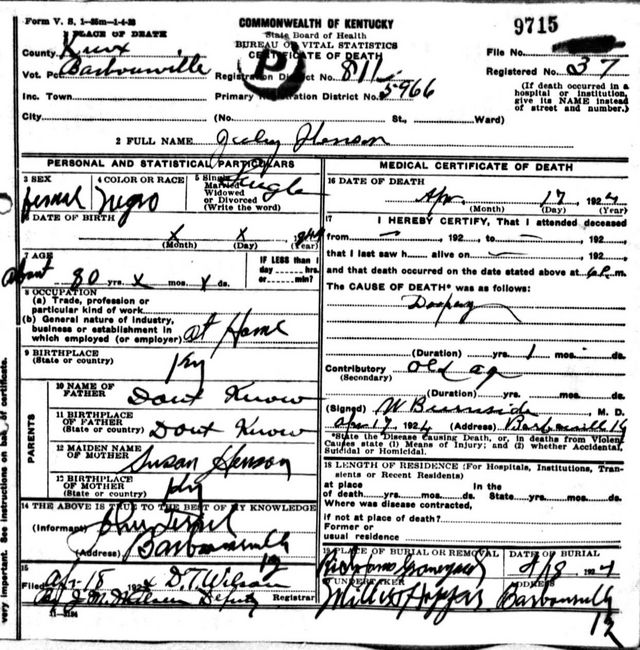 Form V. S. 1-35m-1-4-23
COMMONWEALTH OF KENTUCKY
State Board of Health
BUREAU OF VITAL STATISTICS
CERTIFICATE OF DEATH
9715
PLACE OF DEATH
County Knox
Vot. Pct Barbourville
Inc. Town
City
Registration District No. 817
Primary Registration District No. 5966
(No. St., Ward)
File No.
Registered No. 37
(If death occurred in a
hospital or institution,
give its NAME instead
of street and number.)
2 FULL NAME July Henson
PERSONAL AND STATISTICAL PARTICULARS
3 SEX
femal
4 COLOR OR RACE
Negro
5 Single
Married
Widowed
or Divorced
(Write the word)
Single
DATE OF BIRTH
x x
(Month) (Day) (Year)
7 AGE
about 80 yrs. x mos. x ds.
IF LESS than 1
day hrs.
or min?
8 OCCUPATION
(a) Trade, profession or
particular kind of work
(b) General nature of industry,
business or establishment in
which employed (or employer) At Home
9 BIRTHPLACE
(State or country) Ky
PARENTS
10 NAME OF
FATHER Dont Know
11 BIRTHPLACE
OF FATHER
(State or country) Dont Know
12 MAIDEN NAME
OF MOTHER Susan Henson
13 BIRTHPLACE
OF MOTHER
(State or country) Ky
14 THE ABOVE IS TRUE TO THE BEST OF MY KNOWLEDGE
(Informant)
(Address) Barbourville
Ky
15
Filed Apr-18 1924 D.T. Wilson
Registrar
By J.M. Deputy
11-3184
MEDICAL CERTIFICATE OF DEATH
16 DATE OF DEATH
Apr. 17, 1924
(Month) (Day) (Year)
17 I HEREBY CERTIFY, That I attended deceased
from — , 192 to — , 192
that I last saw h alive on — , 192
and that death occurred on the date stated above at 6P.m.
The CAUSE OF DEATH* was as follows:
Dropsy
(Duration) yrs. 1 mos. ds.
Contributory Old age
(Secondary)
(Duration) yrs. mos. ds.
(Signed) W Burnside M. D.
Apr 17, 1924 (Address) Barbourville Ky
*State the Disease Causing Death, or, in deaths from Violent
Causes state (1) Means of Injury; and (2) whether Accidental,
Suicidal or Homicidal.
18 LENGTH OF RESIDENCE (For Hospitals, Institutions, Tran-
sients or Recent Residents)
at place In the
of death yrs. mos. ds. State yrs. mos. ds.
Where was disease contracted,
if not at place of death?
Former or
usual residence
19 PLACE OF BURIAL OR REMOVAL DATE OF BURIAL
Graveyard 4/18 1924
UNDERTAKER ADDRESS
Barbourville
Ky
very important. See instructions on back of certificate.